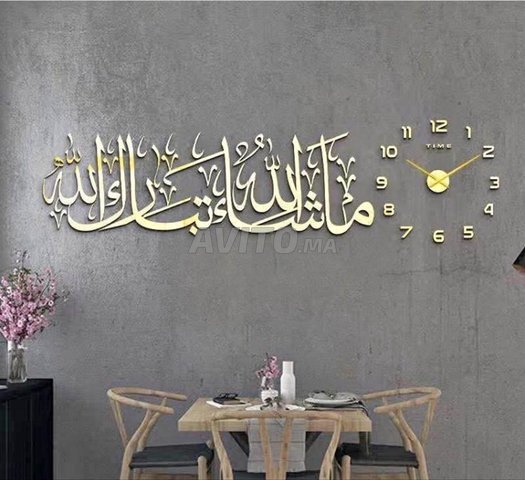 ما شاء الله تبارك الله
12
11
1
10
TIME
2
9
3
8
4
7
6
5
AVITO.MA